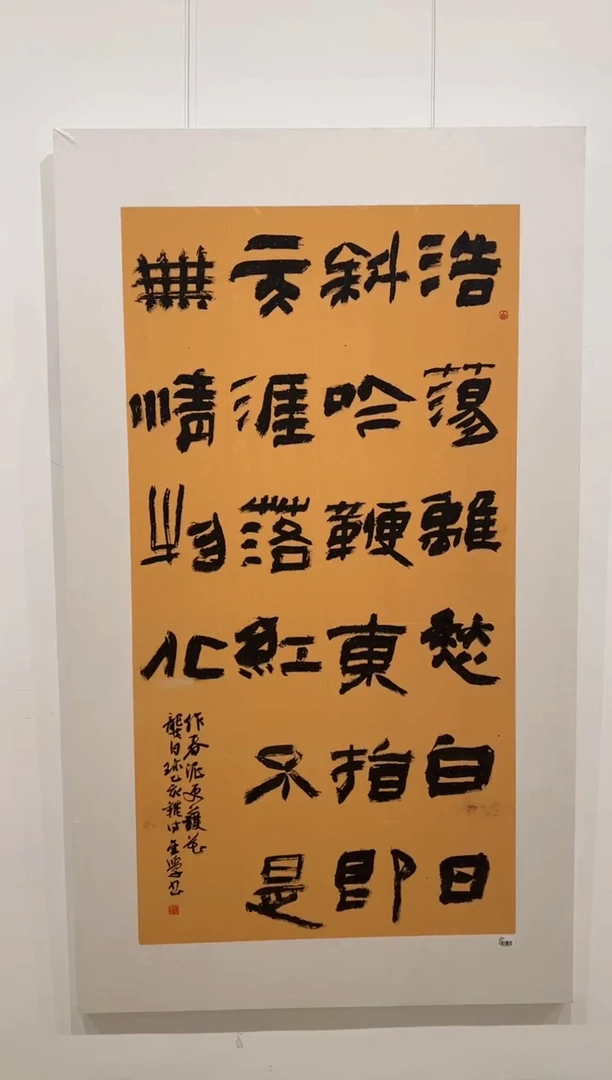 浩蕩離愁白日
斜吟鞭東指即
天涯落紅不是
無情物化
作春泥更護花
龔自珍己亥雜詩